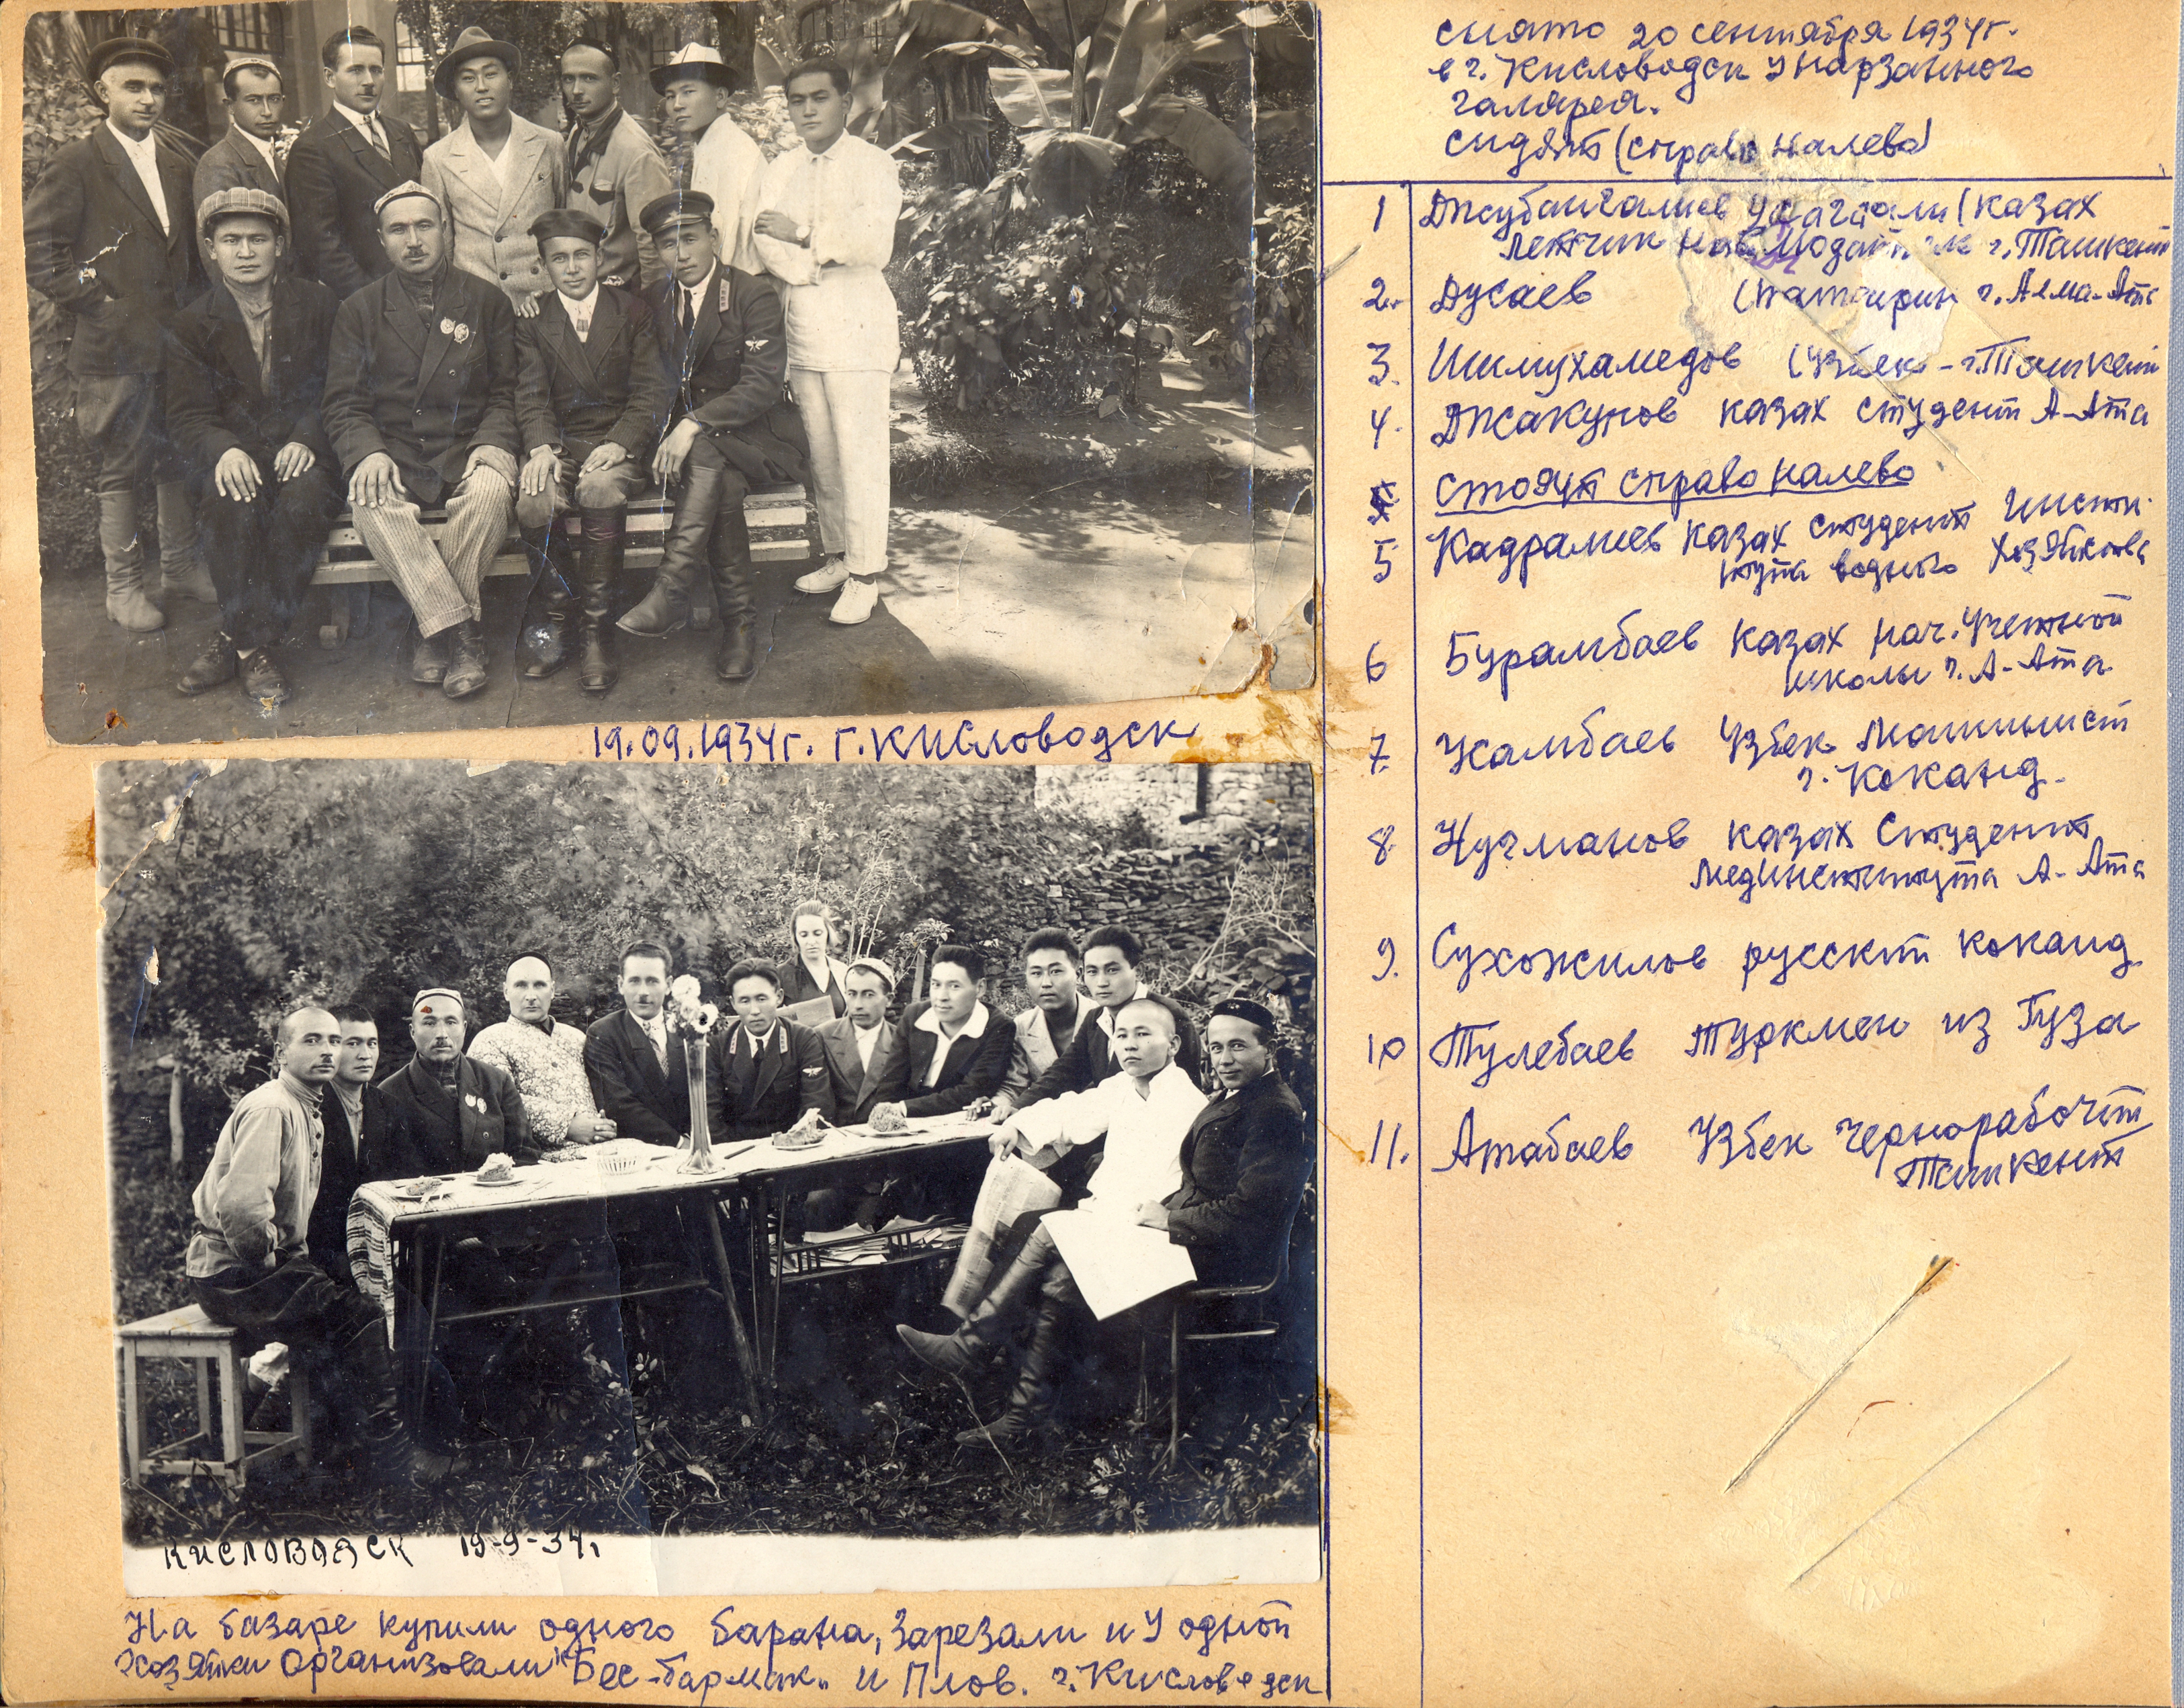 19.09.1934г. г. Кисловодск
Кисловодск 19-9-34г
На базаре купили одного барана, зарезали и у одной
хозяйки организовали "Бес-бармак" и Плов. г. Кисловодск
снято 20 сентября 1934г.
в г. Кисловодск у нарзанного
галярея.
сидят (справо налево)
1 Джубангалиев (казах
летчик наблюдатель г. Ташкент
2. Дусаев (татарин г. Алма-Ата
3. Шимухамедов (узбек - г. Ташкент
4. Джакупов казах студент А-Ата
стоят справо налево
5 Кадралиев казах студент инсти-
тута водного хозяйства
6 Бурамбаев казах нач. учетной
школы г. А-Ата
7. Камбаев Узбек машинист
г. Коканд.
8. Нугманов казах студент
мединститута А-Ата
9. Сухожилов русский Коканд
10 Тулебаев туркмен из Гуза
11. Атабаев Узбек чернорабочий
Ташкент